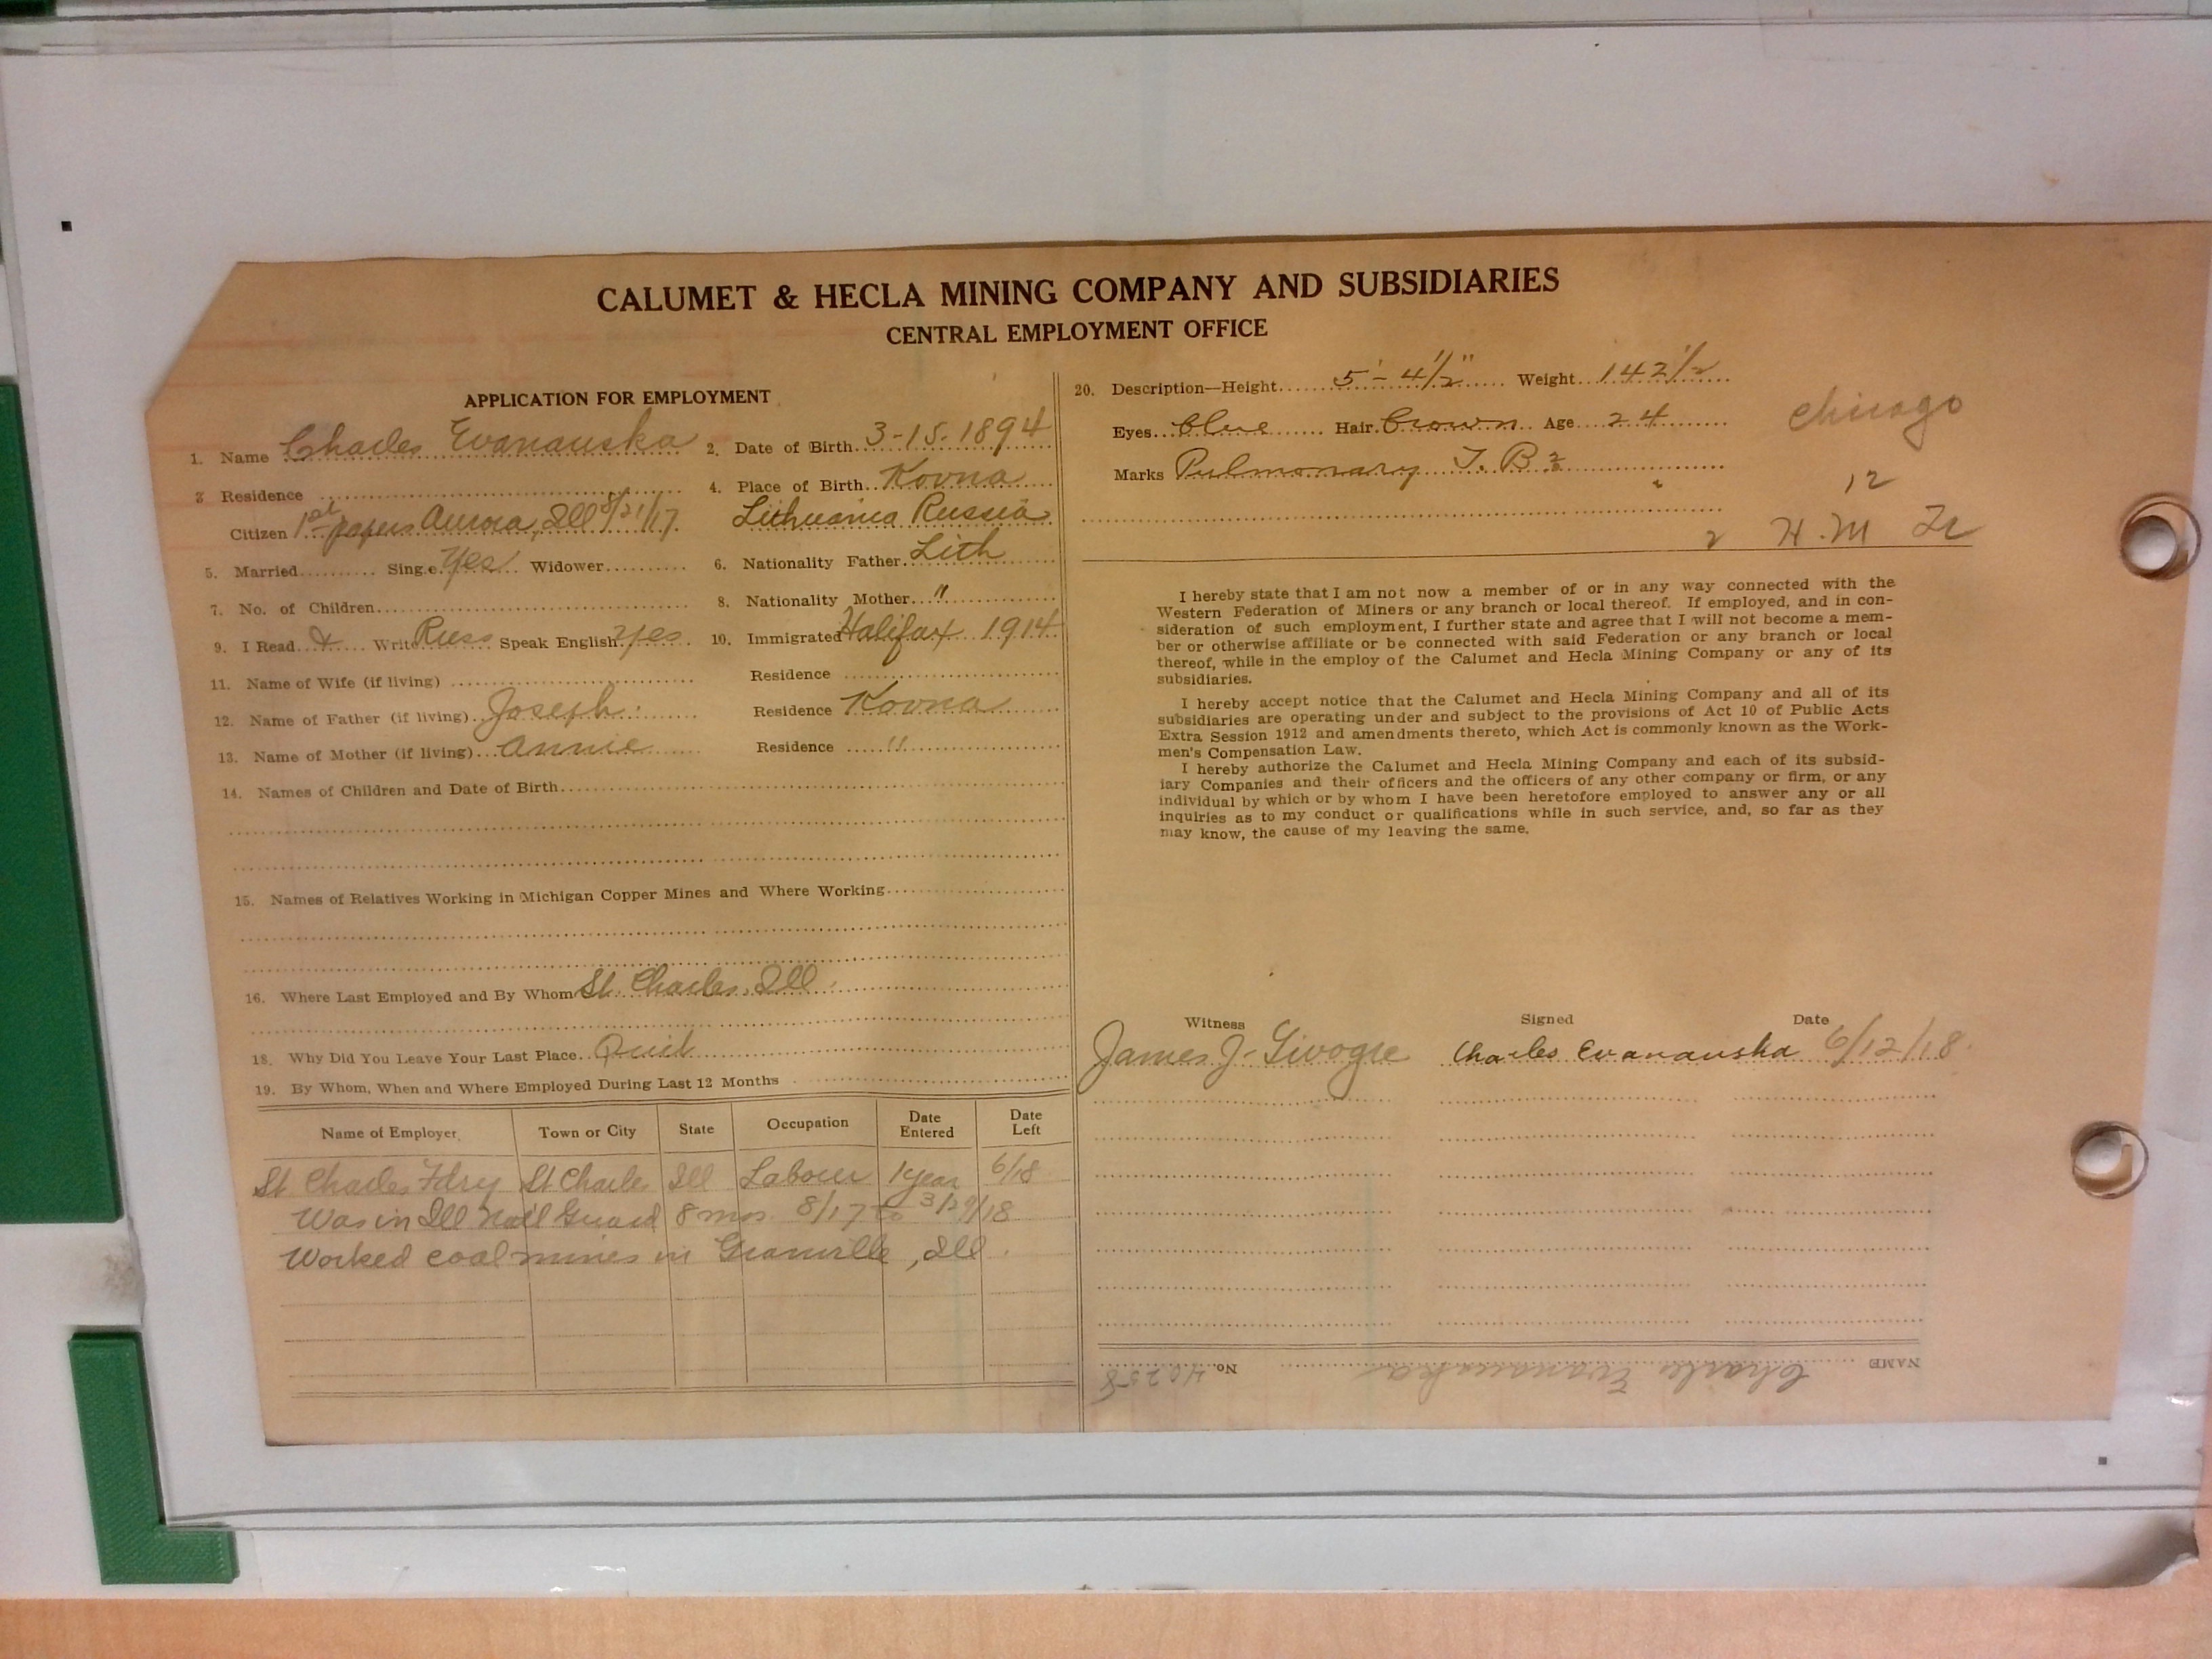 CALUMET & HECLA MINING COMPANY AND SUBSIDIARIES
CENTRAL EMPLOYMENT OFFICE
APPLICATION FOR EMPLOYMENT
1. Name Charles Evanauska 2. Date of Birth 3-15-1894
3 Residence 4. Place of Birth Kovna
Citizen 1st papers Aurora, Ill 8/21/17 Lithuania Russia
5. Married Single Yes Widower 6. Nationality Father Lith
7. No. of Children 8. Nationality Mother "
9. I Read & Write Russ Speak English yes 10. Immigrated Halifax 1914
11. Name of Wife (if living) Residence
12. Name of Father (if living) Joseph Residence Kovna
13. Name of Mother (if living) Annie Residence "
14. Names of Children and Date of Birth
15. Names of Relatives Working in Michigan Copper Mines and Where Working
16. Where Last Employed and By Whom St. Charles, Ill
18. Why Did You Leave Your Last Place Quit
19. By Whom, When and Where Employed During Last 12 Months
Name of Employer Town or City State Occupation Date Entered Date Left
St Charles Fdry St Charles Ill Labour 1 year 6/18
Was in Ill Nat'l Guard 8 mos 8/17 to 3/29/18
Worked coal mines in Granville, Ill.
20. Description—Height 5'-4 1/2" Weight 142 1/2
Eyes blue Hair brown Age 24
Chicago
Marks Pulmonary T. B.
12
2 H.M Tr
I hereby state that I am not now a member of or in any way connected with the
Western Federation of Miners or any branch or local thereof. If employed, and in con-
sideration of such employment, I further state and agree that I will not become a mem-
ber or otherwise affiliate or be connected with said Federation or any branch or local
thereof, while in the employ of the Calumet and Hecla Mining Company or any of its
subsidiaries.
I hereby accept notice that the Calumet and Hecla Mining Company and all of its
subsidiaries are operating under and subject to the provisions of Act 10 of Public Acts
Extra Session 1912 and amendments thereto, which Act is commonly known as the Work-
men's Compensation Law.
I hereby authorize the Calumet and Hecla Mining Company and each of its subsid-
iary Companies and their officers and the officers of any other company or firm, or any
individual by which or by whom I have been heretofore employed to answer any or all
inquiries as to my conduct or qualifications while in such service, and, so far as they
may know, the cause of my leaving the same.
Witness Signed Date
James J. Charles Evanauska 6/12/18
NAME Charles Evanauska No. 40258